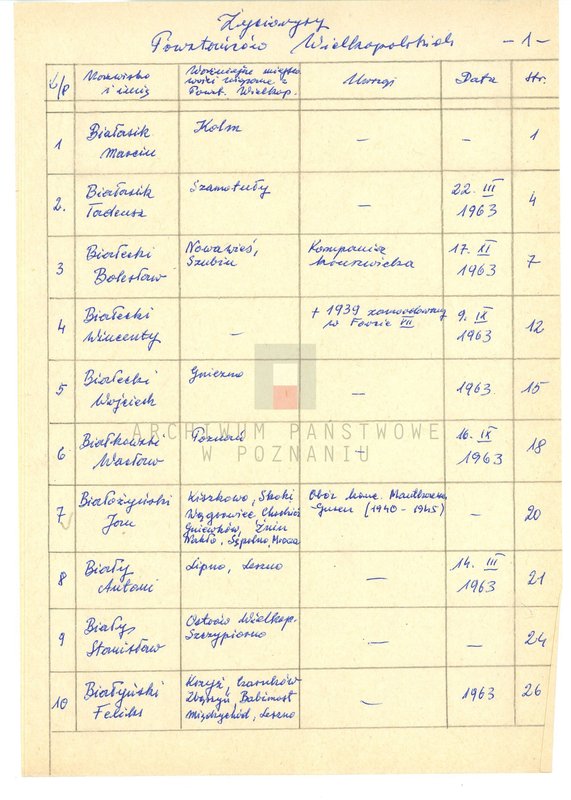 Życiorysy
Powstańców Wielkopolskich -1-
L/p Nazwisko i imię Ważniejsze miejscowości związane z Powst. Wielkop. Uwagi Data str.
1 Białasik Marcin Kolm — — 1
2. Białasik Tadeusz Szamotuły — 22. III 1963 4
3 Białecki Bolesław Nowawieś, Szubin Kompania 17. XI 1963 7
4 Białecki Wincenty — + 1939 zamordowany w Forcie VII 9. IX 1963 12
5 Białecki Wojciech Gniezno — 1963 15
6 Białkowski Wacław Poznań — 16. IX 1963 18
7 Białożyński Jan Kiszkowo, Skoki Wągrowiec Chodzież Gniewków, Żnin Nakło, Sępolno, Mrocza Obóz konc. Mauthausen Gusen (1940-1945) — 20
8 Biały Antoni Lipno, Leszno — 14. III 1963 21
9 Biały Stanisław Ostrów Wielkop. Szczypiorno — — 24
10 Białyński Feliks Krzyż, Czarnków Zbąszyń, Babimost Międzychód, Leszno 1963 26
ARCHIWUM PAŃSTWOWE
W POZNANIU